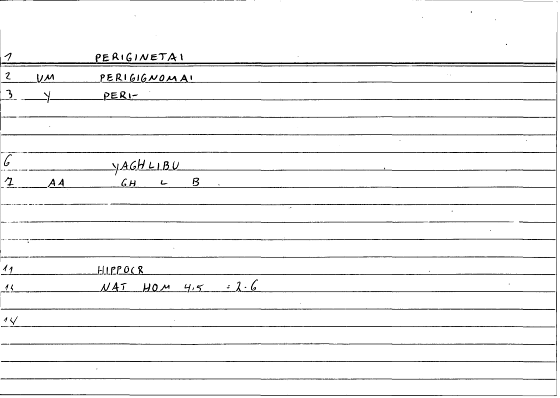 1 PERIGINETAI
2 UM PERIGIGNOMAI
3 Y PERI-
6 YAGHLIBU
7 AA GH L B
11 HIPPOCR
12 NAT HOM 4,5 = 2.6
14